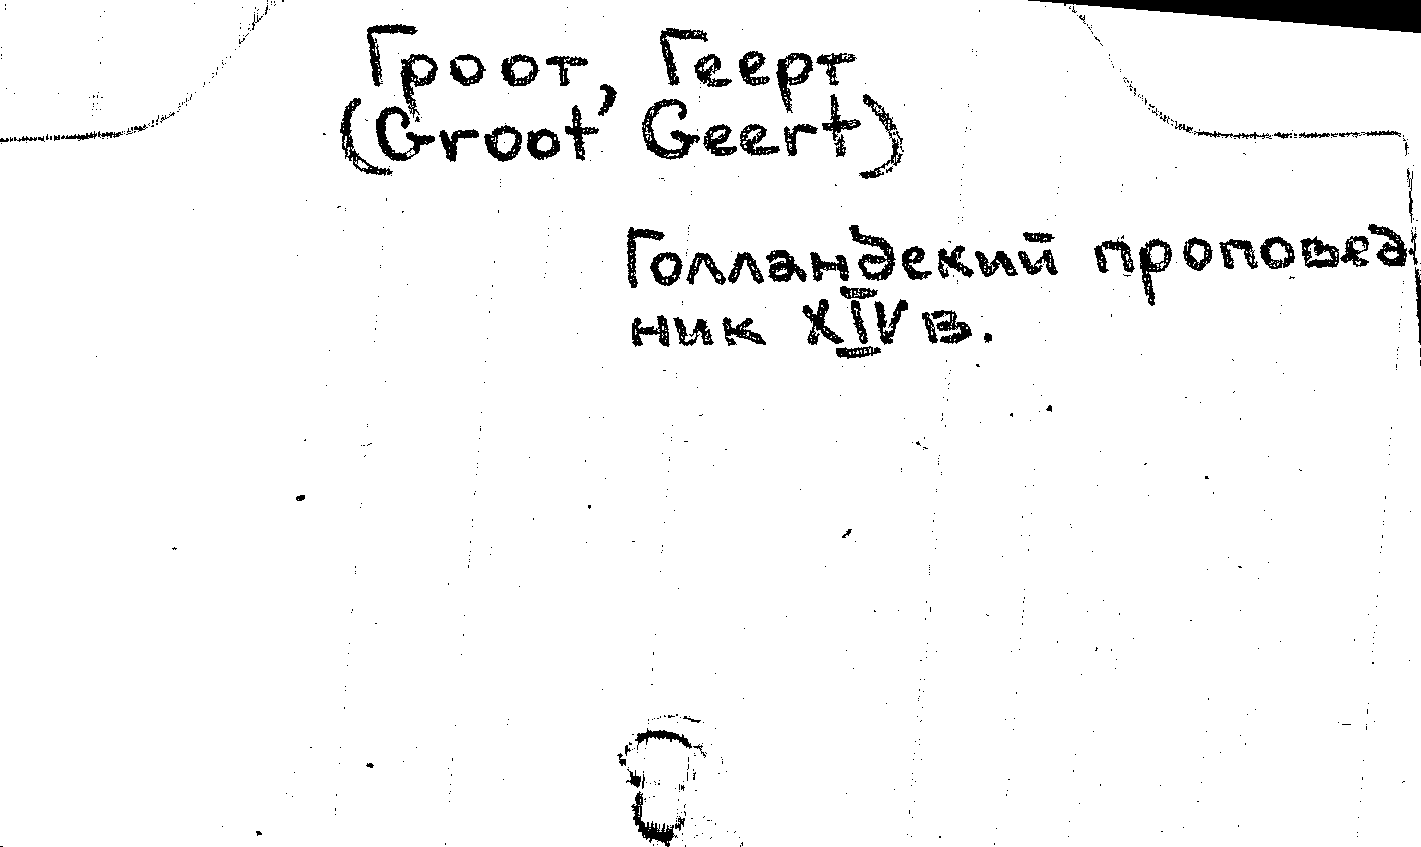 Гроот, Геерт
(Groot Geert)
Голландский проповед
ник XIV в.